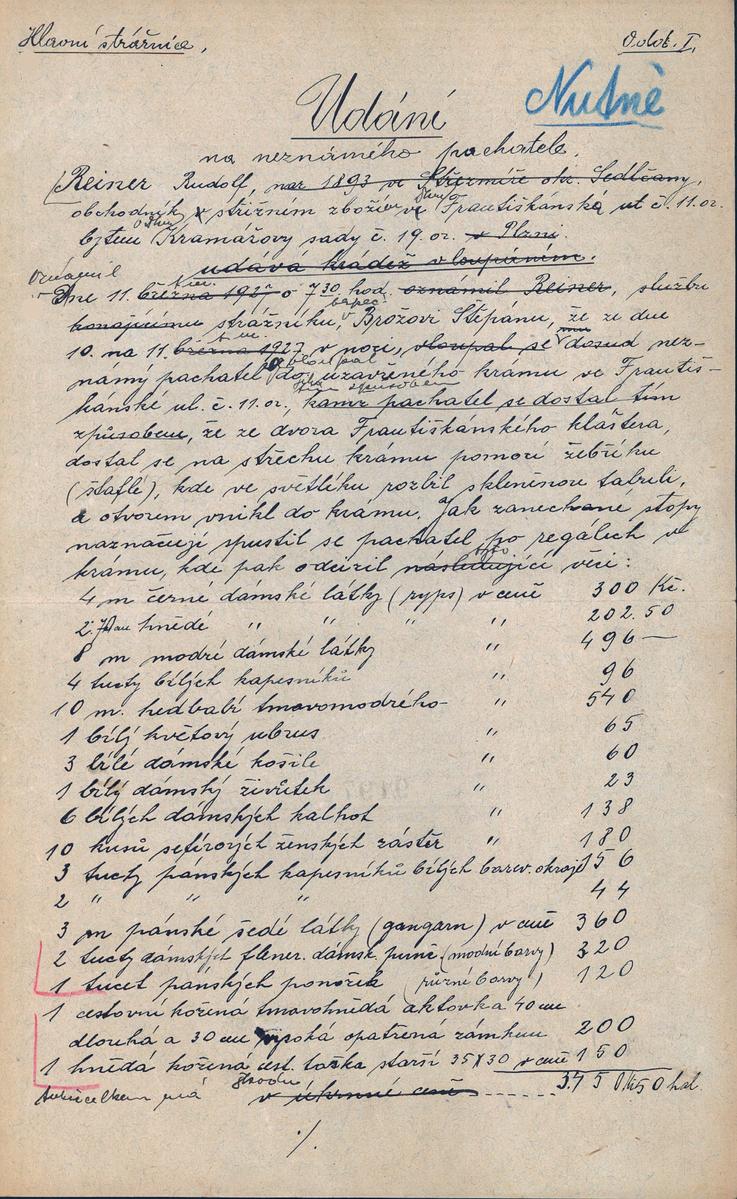 Hlavní strážnice,
Odděl. I.
Nutně
Udání
na neznámého pachatele.
Reiner Rudolf, nar 1893 ve Střezmíře okr. Sedlčany,
obchodník s střižním zbožím ve Františkánská ul č. 11. or.
bytem Kramářovy sady č. 19. or. v Plzni.
udává krádež vloupáním.
Oznámil
t.m.
Dne 11. března 1927 o 7 30 hod. oznámil Reiner, službu
konajícímu strážníku, Brožovi Štěpánu, že ze dne
t.m. mu
10. na 11. března 1927 v noci, vloupal se dosud nez-
vloupal
námý pachatel do uzavřeného krámu ve Františ-
tím způsobem
kánské ul. č. 11. or., kamž pachatel se dostal tím
způsobem, že ze dvora Františkánského kláštera,
dostal se na střechu krámu pomocí žebříku
(štaflí), kde ve světlíku rozbil skleněnou tabuli,
a otvorem vnikl do krámu. Jak zanechané stopy
naznačují spustil se pachatel po regálech v
krámu, kde pak odcizil následující věci:
4 m černé dámské látky (ryps) v ceně 300 Kč.
hnědé " " " " 202.50
8 m modré dámské látky " 496 —
4 tucty bílých kapesníků " 96
10 m. hedbabí tmavomodrého " 540
1 bílý květový ubrus " 65
3 bílé dámské košile " 60
1 bílý dámský živůtek " 23
6 bílých dámských kalhot " 138
10 kusů sefírových ženských zástěr " 180
3 tucty pánských kapesníků bílých barev. okraj 156
2 " " " 44
3 m pánské šedé látky (gangarn) v ceně 360
2 tucty dámských dámsk. punč. (modní barvy) 320
1 tucet panských ponožek (různé barvy) 120
1 cestovní kožená tmavohnědá aktovka 40 cm
dlouhá a 30 cm vysoká opatřená zámkem 200
1 hnědá kožená cest. taška starší 35 x 30 v ceně 150
škodu
celkem má v úhrnné ceně ------ 3.450 Kč 50 hal.
./.